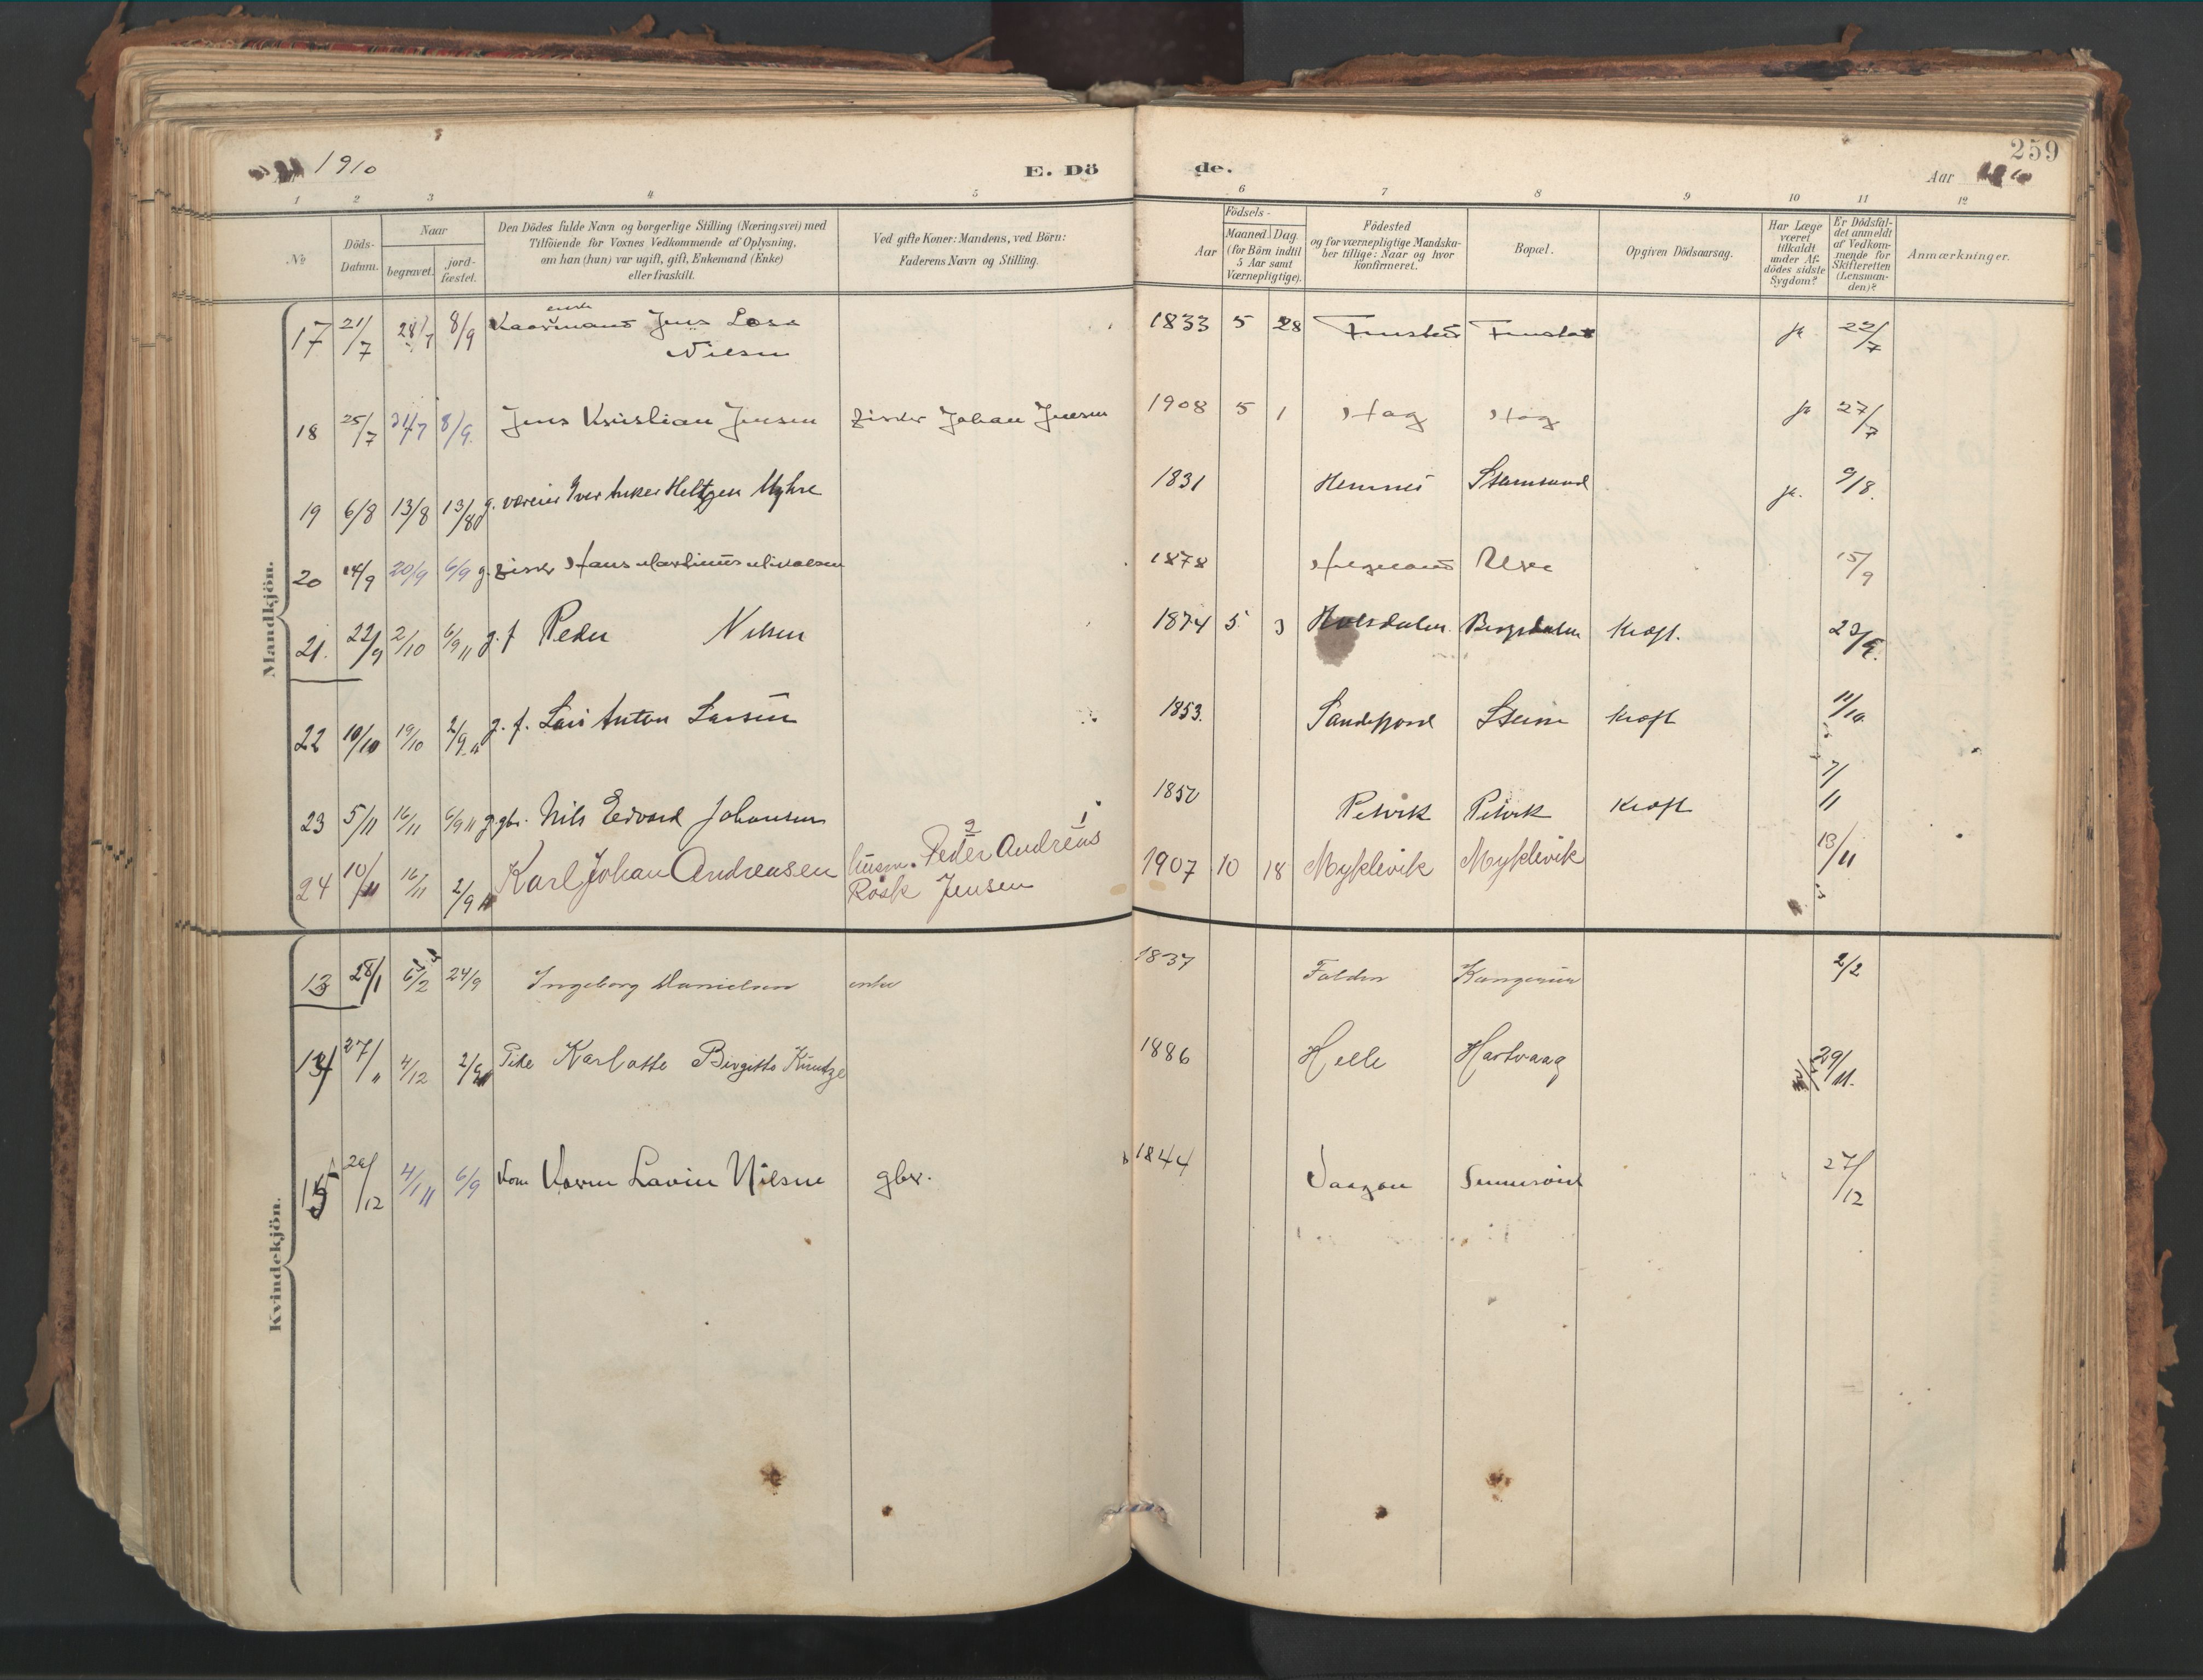 1910
E. Dö de.
259
Aar
1 2 3 4 5 6 7 8 9 10 11 12
No
Döds-Datum.
Naar
begravet.
jord-fæstet.
Den Dödes fulde Navn og borgerlige Stilling (Næringsvei) med
Tilföiende for Voxnes Vedkommende af Oplysning,
om han (hun) var ugift, gift, Enkemand (Enke)
eller fraskilt.
Ved gifte Koner: Mandens, ved Börn:
Faderens Navn og Stilling.
Födsels-
Aar
Maaned Dag
(for Börn indtil
5 Aar samt
Værnepligtige).
Födested
og for værnepligtige Mandska-
ber tillige: Naar og hvor
konfirmeret.
Bopæl.
Opgiven Dödsaarsag.
Har Læge
været
tilkaldt
under Af-
dödes sidste
Sygdom?
Er Dödsfal-
det anmeldt
af Vedkom-
mende for
Skifteretten
(Lensman-
den)?
Anmærkninger.
Mandkjön.
17 21/7 28/7 8/9 Jens
Nilsen 1833 5 28 ja 22/7
18 25/7 31/7 8/9 Jens Kristian Jensen fisker Johan Jensen 1908 5 1 Hag Hag ja 27/7
19 6/8 13/8 13/8 g. væreier Iver Anker Heltzen Myhre 1831 Hemnes Stamsund ja. 9/8.
20 14/9 20/9 6/9 g. fisker Hans Martinus 1878 Helgeland Ure 15/9
21. 22/9 2/10 6/9 11 g. f Peder Nilsen 1874 5 3 Bergsdalen Kræft. 23/9.
22 10/10 19/10 2/9 11 g. f. Lars Anton Larsen 1853. Sandefjord Steine Kræft 11/10
23 5/11 16/11 6/9 11 g. gbr. Nils Edvard Johansen 1850 Petvik Petvik Kræft 7/11
24 10/11 16/11 2/9 11 Karl Johan Andreasen husm. Peder Andreas
Rask Jensen 1907 10 18 Myklevik Myklevik 13/11
Kvindekjön.
13 28/1 6/2 24/9 Ingeborg Danielsen enke 1837 Folden 2/2
14 27/11 4/12 2/9 11 Pike Karlotte Birgitte Küntze 1886 Helle Hartvaag 29/11.
15 26/12 4/1 11 6/9 Kone Karen Lavine Nilsen gbr. 1844 Vaagan 27/12